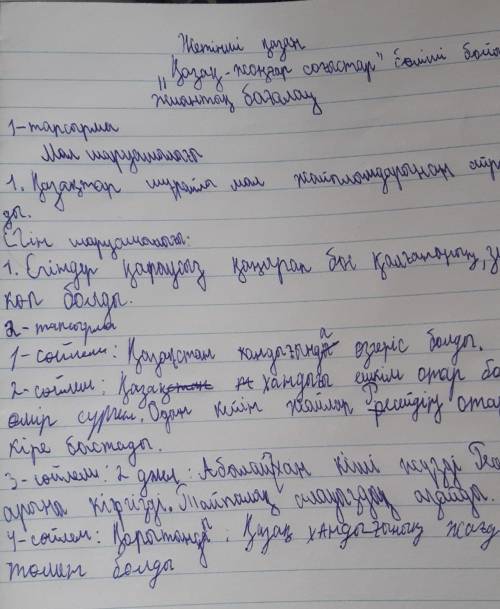 Жетінші қазан
"Қазақ-жоңғар соғыстар" бөлімі бойы
Жиынтық бағалау
1-тапсырма
Мал шаруашылығы
1. Қазақтар шұрайлы мал жайылымдарынан айры
ды.
Егін шаруашылығы:
1. Егіндер қараусыз қаңырап бос қалғанорын,
көп болды.
2-тапсырма
1-сөйлем: Қазақстан хандығында өзгеріс болды.
2-сөйлем: Қазақ хандығы ешкім отар бо
өмір сүрген. Одан кейін жайлап Ресейдің отар
кіре бастады.
3-сөйлем: 2 дәлел: Абылайхан кіші жүзді Ресе
арына кіргізді. Тайпалық
азайды.
4-сөйлем: Қорытынды: Қазақ хандығының жағд
төмен болды